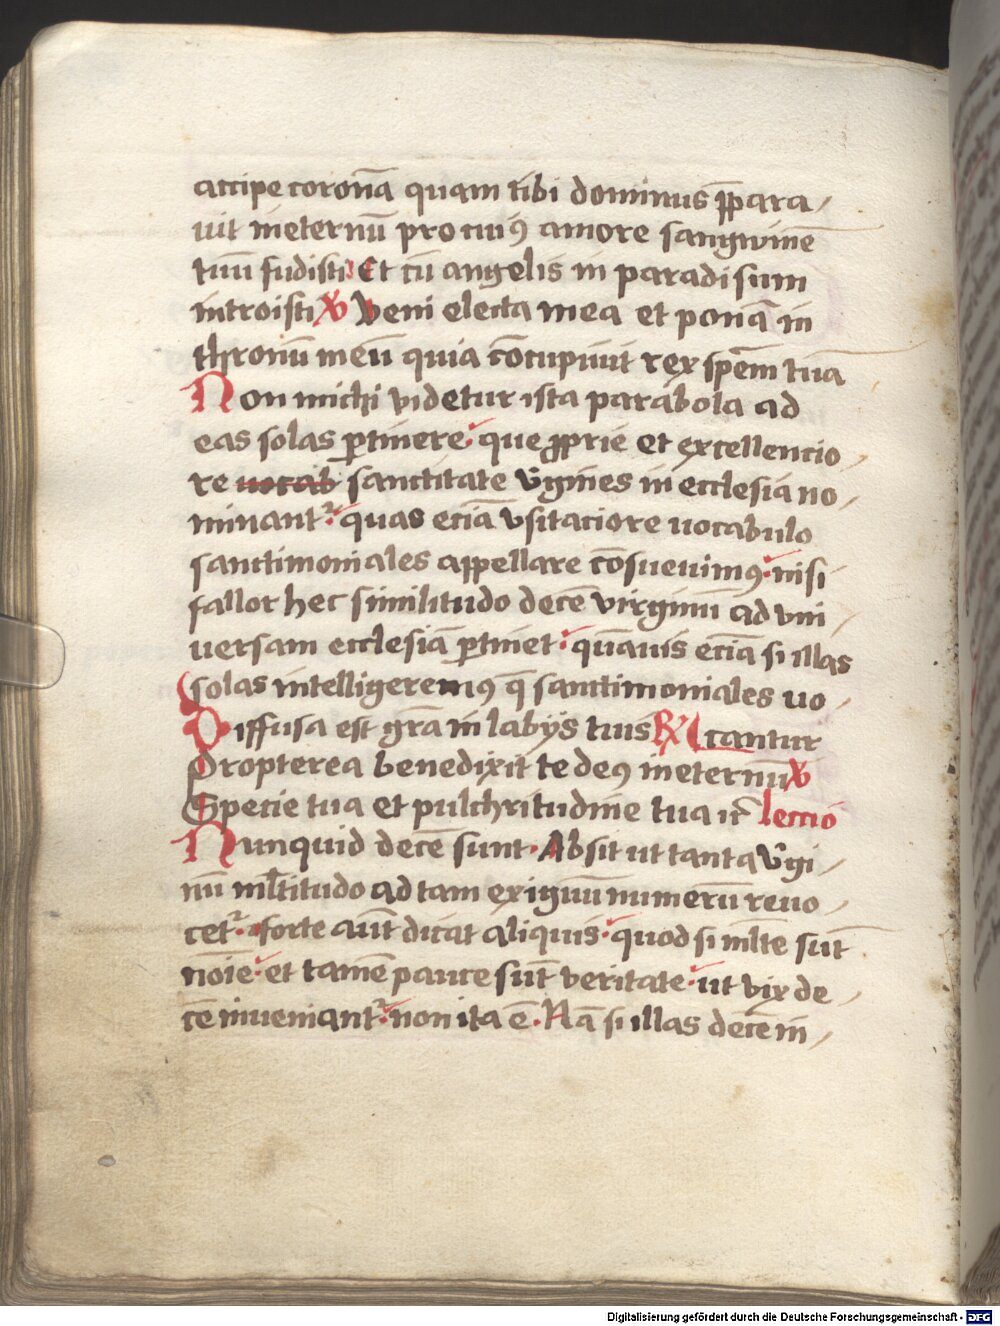 accipe coronā quam tibi dominus p̄para
uit ineternū pro cuiꝯ amore sangwinē
tuū fudisti Et cū angelis in paradisum
introisti ℣ Veni electa mea et ponā in
thronū meū quia cōcupiuit rex spēm tuā
Non michi videtur ista parabola ad
eas solas ꝑtinere que ꝓprie et excellencio
re uocab sanctitate v̄gines in ecclesia no
minantᷣ quas eciā vsitaciore uocabulo
sanctimoniales appellare cōsueuimꝯ nisi
fallor hec similitudo decē virginū ad vni
uersam ecclesiā ꝑtinet quāuis eciā si illas
solas intelligeremꝯ q̄ sanctimoniales uo
Diffusa est grā in labijs tuis ℟ cantur
Propterea benedixit te deꝯ ineternū ℣
Specie tua et pulchritudine tua ic̄ lectio
Nunquid decē sunt Absit ut tanta v̄gi
nū ml̄titudo ad tam exiguū numerū reuo
cetᷣ forte aūt dicat aliquis quod si ml̄te sūt
noīe et tamē pauce sūt veritate ut vix de
cē inueniantᷣ non ita ē Nā si illas decē in
Digitalisierung gefördert durch die Deutsche Forschungsgemeinschaft - DFG